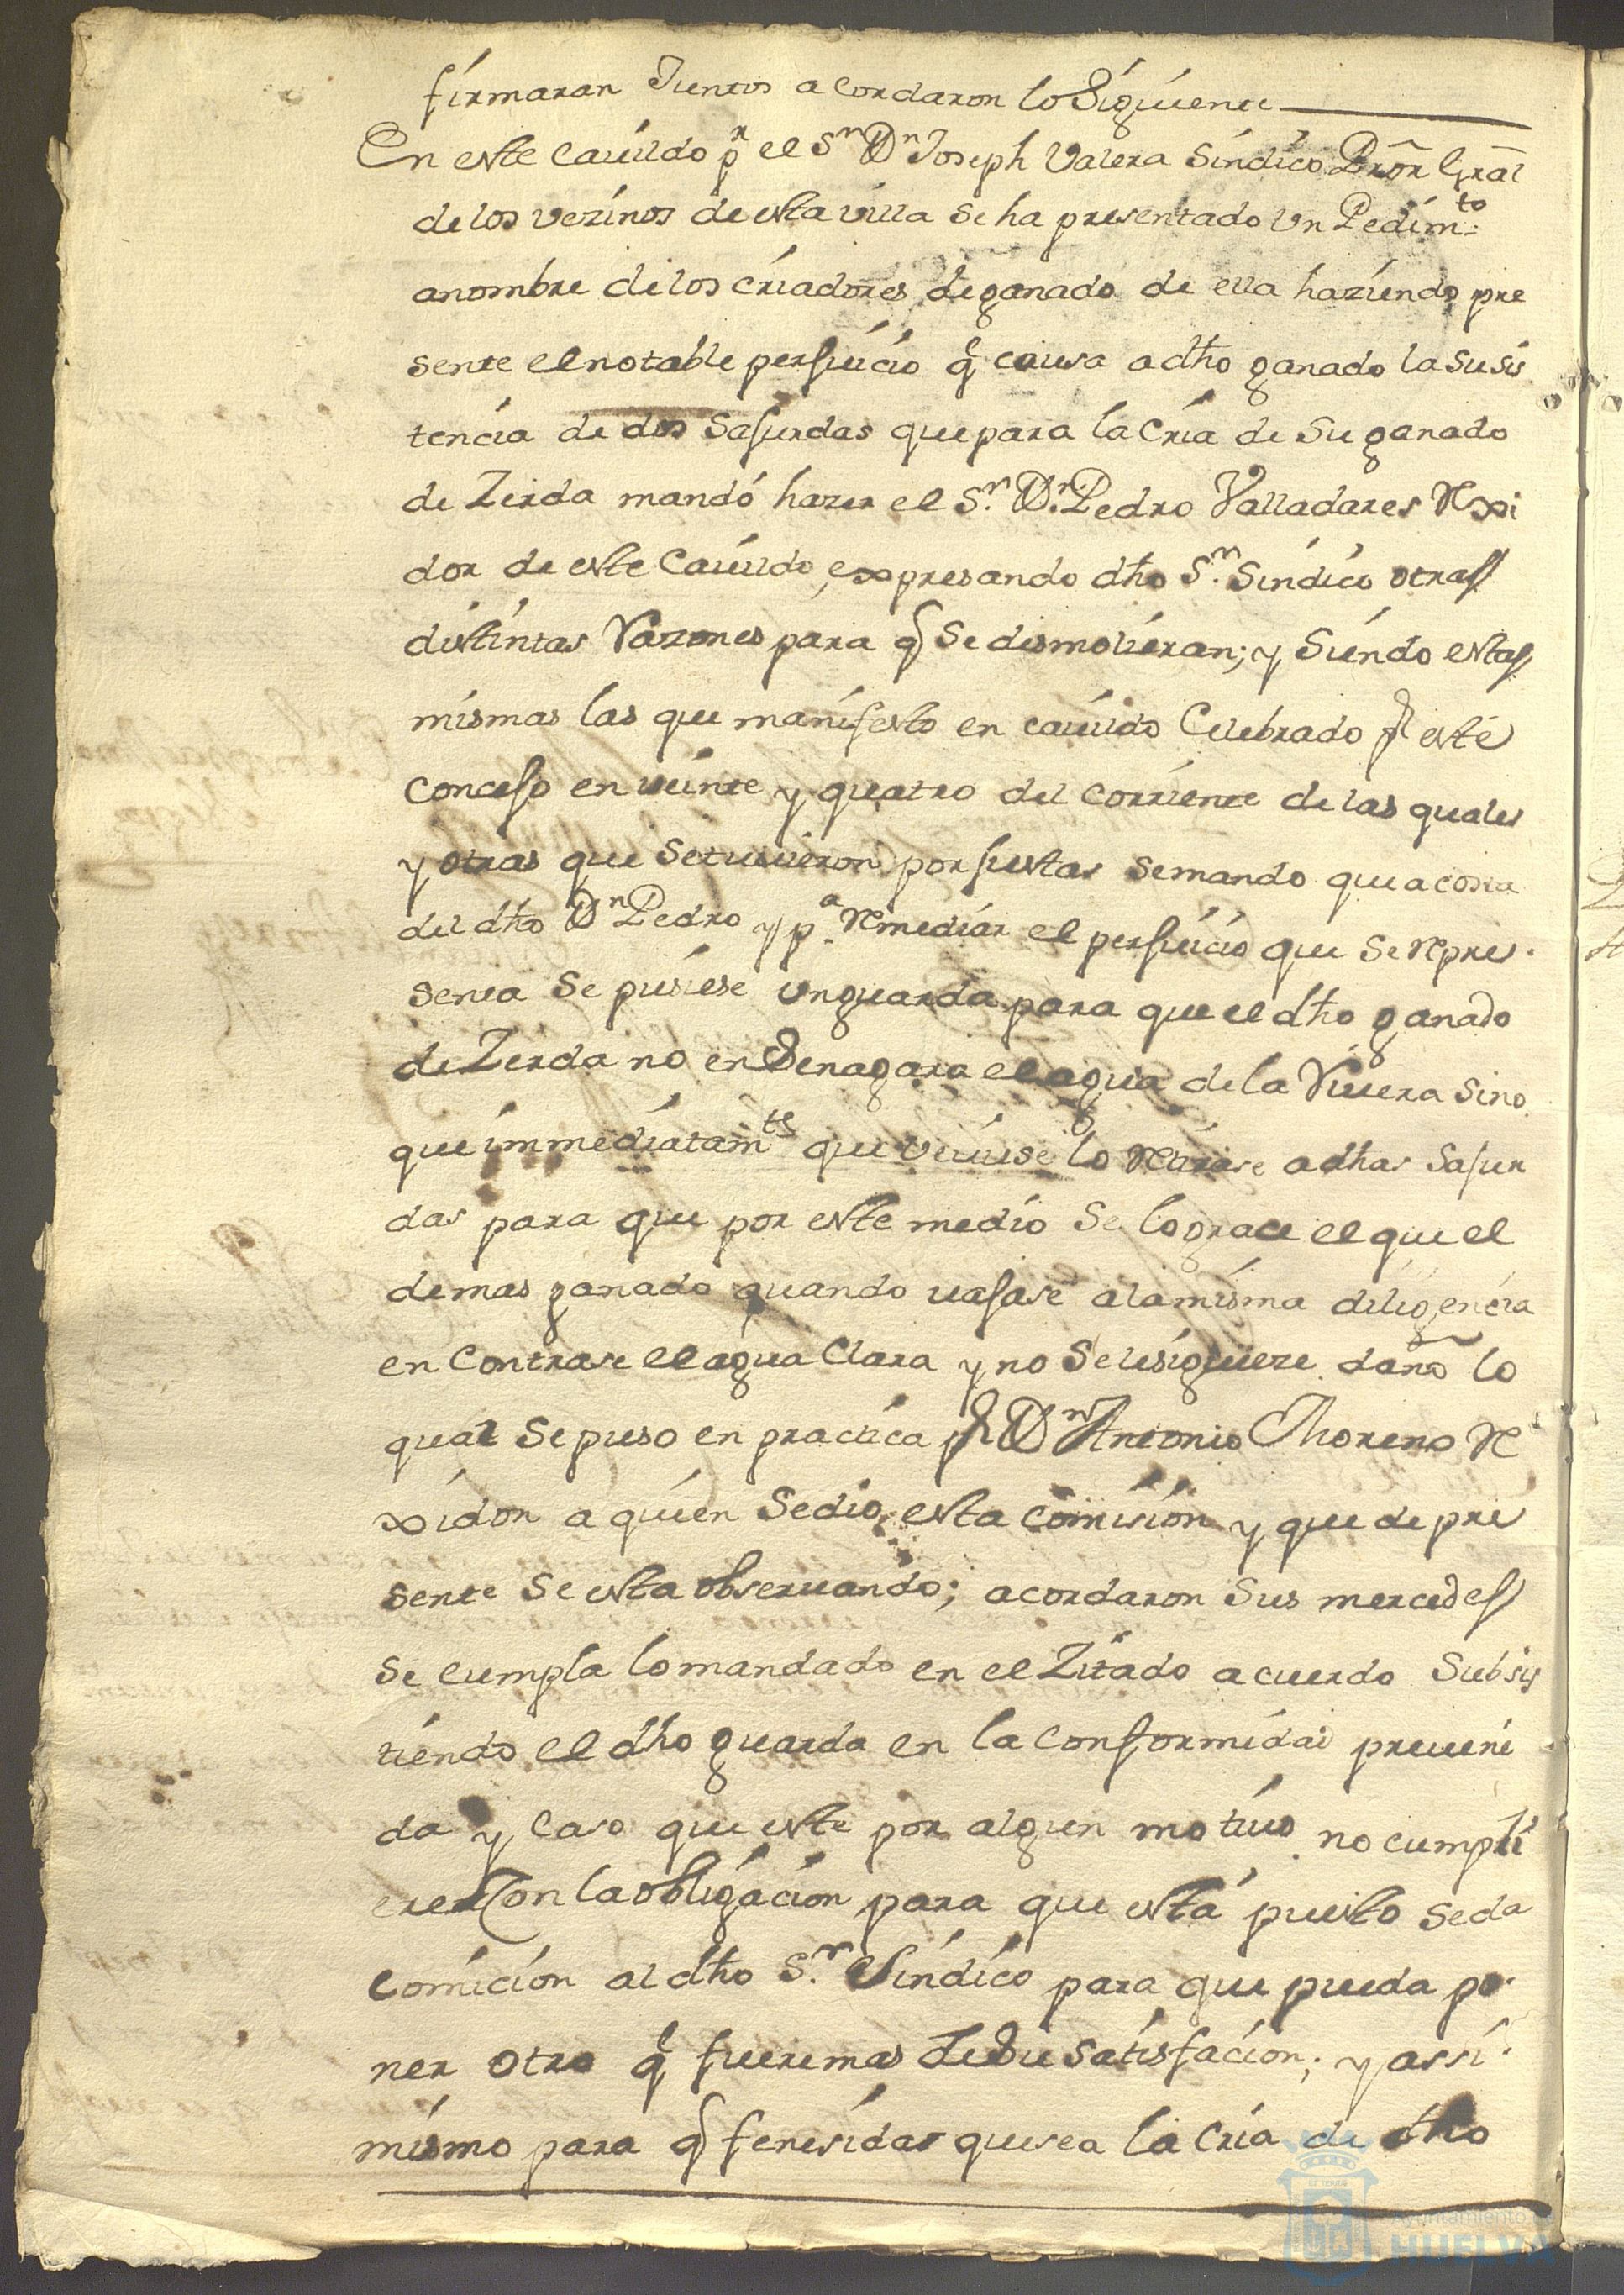 firmaran Juntos acordaron lo Siguiente
En este Cauildo pr el Sr Dn Joseph Valera Sindico Prõr Grãl
de los vezinos de esta villa Se ha presentado Un Pedimto
a nombre de los criadores de ganado de ella haziendo pre
sente el notable perjuicio q causa a dho ganado la susis
tencia de dos Sajurdas que para la Cria de Su ganado
de Zerda mandó hazer el Sr. Dn. Pedro Valladares Rexi
dor de este Cauildo, expresando dho Sr. Sindico otras
distintas Razones para q Se desmolieran; y Siendo estas
mismas las que manifesto en cauildo Celebrado pr este
Concejo en veinte y quatro del corriente de las quales
y otras que Setuuieron por justas Se mando que a costa
del dho Dn Pedro y pa. Remediar el perjuicio que Se Repre
senta Se pusiese un guarda para que el dho ganado
de Zerda no enSenagara el agua de la Riuera Sino
que immediatamte que veuiese lo Retirase a dhas Sajur
das para que por este medio Se lograce el que el
demas ganado quando uajase a la misma diligencia
en Contrase el agua Clara y no Se lesiguiere daño lo
qual Se puso en practica pr Dn Antonio Moreno Re
xidor a quien Sedio esta Comision y que de pre
sente Se esta obseruando; acordaron Sus mercedes
Se cumpla lo mandado en el Zitado acuerdo Subsis
tiendo el dho guarda en la Conformidad preueni
da y Caso que este por algun motiuo no cumpli
ere Con la obligacion para que está puesto Se da
Comicion al dho Sr. Sindico para que pueda po
ner otro q fuere mas de Su satisfacion; y assi
mismo para q fenesidas que sea la Cria de dho
Ayuntamiento de
HUELVA